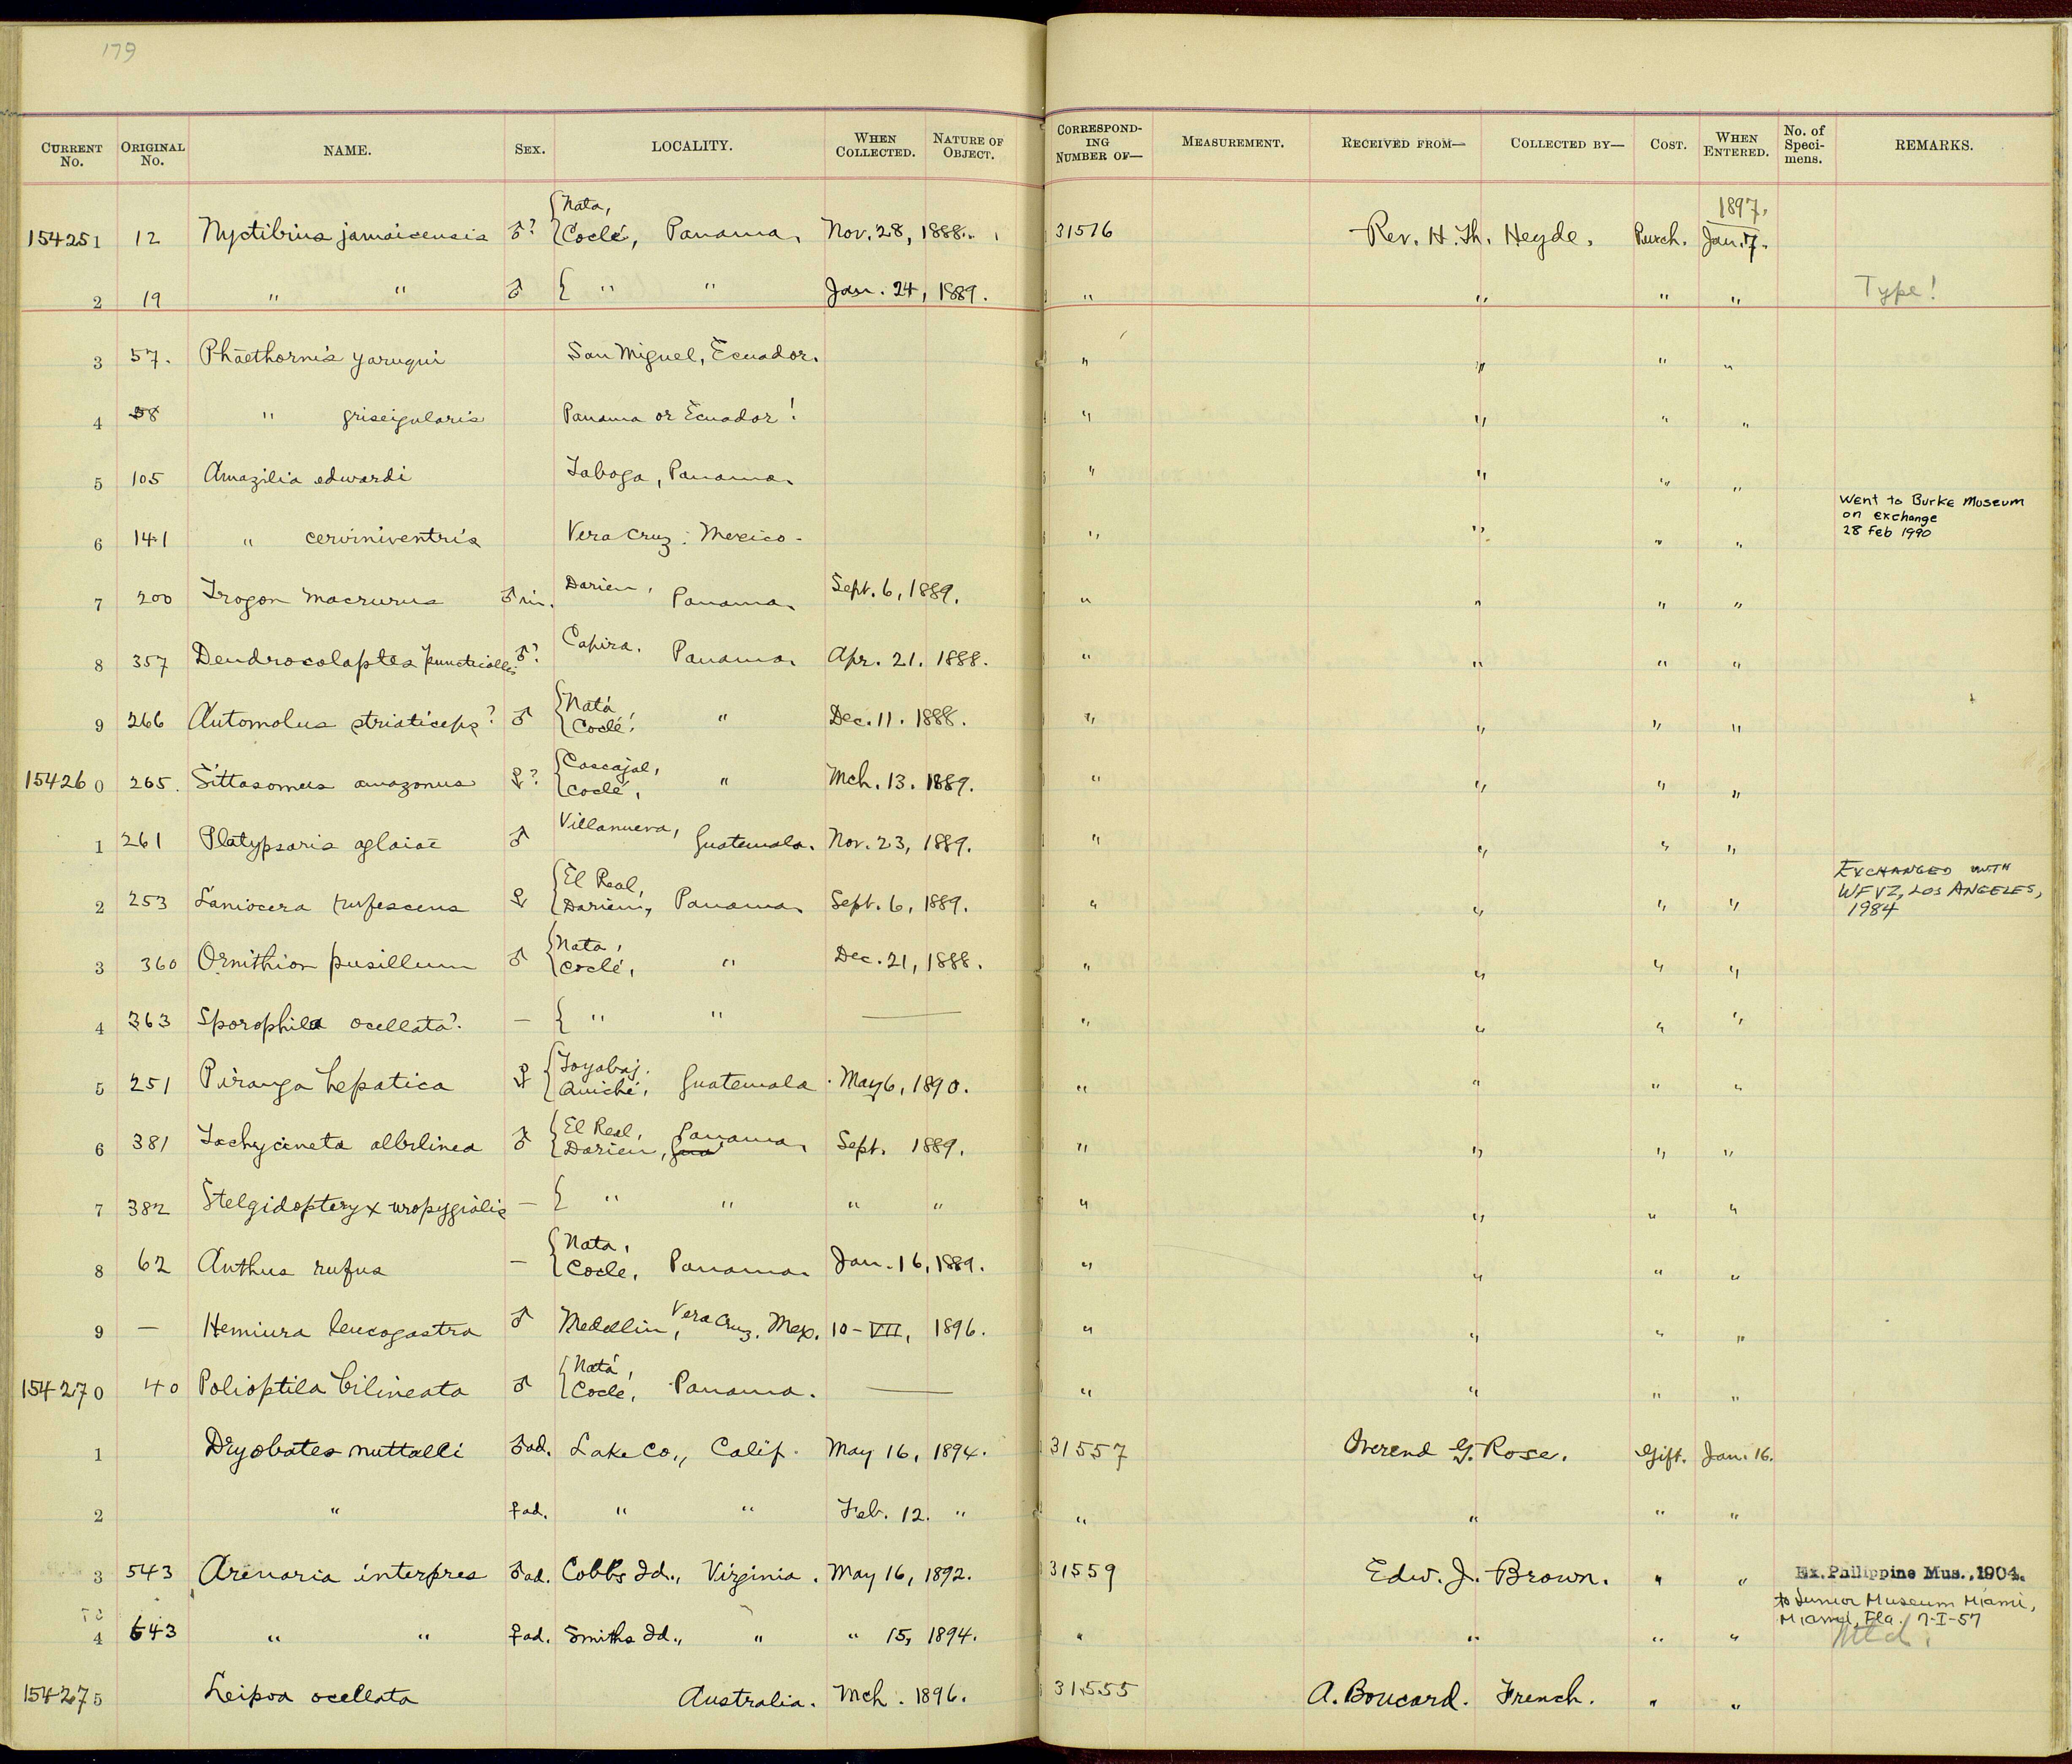 179
CURRENT No. ORIGINAL No. NAME. SEX. LOCALITY. WHEN COLLECTED. NATURE OF OBJECT. CORRESPONDING NUMBER OF— MEASUREMENT. RECEIVED FROM— COLLECTED BY— COST. WHEN ENTERED. No. of Specimens. REMARKS.
154251 12 Nyctibius jamaicensis ♂? { Nata, Coclé, Panama. Nov. 28, 1888. 31576 Rev. H. Th. Heyde. Purch. 1897. Jan. 7.
2 19 " " ♂ { " " Jan. 24, 1889. " " " " Type!
3 57. Phaethornis yaruqui San Miguel, Ecuador. " " " "
4 58 " griseigularis Panama or Ecuador! " " " "
5 105 Amazilia edwardi Taboga, Panama. " " " "
6 141 " cerviniventris Vera Cruz: Mexico. " " " " Went to Burke Museum on exchange 28 Feb 1990
7 200 Trogon macrurus ♂ Darien, Panama. Sept. 6, 1889. " " " "
8 357 Dendrocolaptes ♂? Capira. Panama. Apr. 21. 1888. " " " "
9 266 Automolus striaticeps? ♂ { Natá, Coclé, " Dec. 11. 1888. " " " "
154260 265. Sittasomus amazonus ♀? { Cascajal, Coclé, " Mch. 13. 1889. " " " "
1 261 Platypsaris aglaiae ♂ Villanueva, Guatemala. Nov. 23, 1889. " " " "
2 253 Laniocera rufescens ♀ { El Real, Darien, Panama. Sept. 6, 1889. " " " " EXCHANGED WITH WFVZ, LOS ANGELES, 1984
3 360 Ornithion pusillum ♂ { Nata, Coclé, " Dec. 21, 1888. " " " "
4 363 Sporophila ocellata? — { " " — " " " "
5 251 Piranga hepatica ♀ { Joyabaj. Quiché, Guatemala. May 6, 1890. " " " "
6 381 Tachycineta albilinea ♂ { El Real, Darien, Panama. Sept. 1889. " " " "
7 382 Stelgidopteryx uropygialis — { " " " " " " " "
8 62 Anthus rufus — { Nata, Cocle, Panama. Jan. 16, 1889. " " " "
9 — Hemiura leucogastra ♂ Medellin, Vera Cruz. Mex. 10-VII, 1896. " " " "
154270 40 Polioptila bilineata ♂ { Natá, Coclé, Panama. — " " " "
1 Dryobates nuttalli ♂ad. Lake Co., Calif. May 16, 1894. 31557 Overend G. Rose. Gift. Jan. 16.
2 " ♀ad. " " Feb. 12. " " " " "
3 543 Arenaria interpres ♂ad. Cobbs Id., Virginia. May 16, 1892. 31559 Edw. J. Brown. " " Ex. Philippine Mus., 1904.
to Junior Museum Miami,
Miami, Fla. 7-I-57
4 643 " " ♀ad. Smiths Id., " " 15, 1894. " " " " Mtd.
154275 Leipoa ocellata Australia. Mch. 1896. 31555 A. Boucard. French. " "